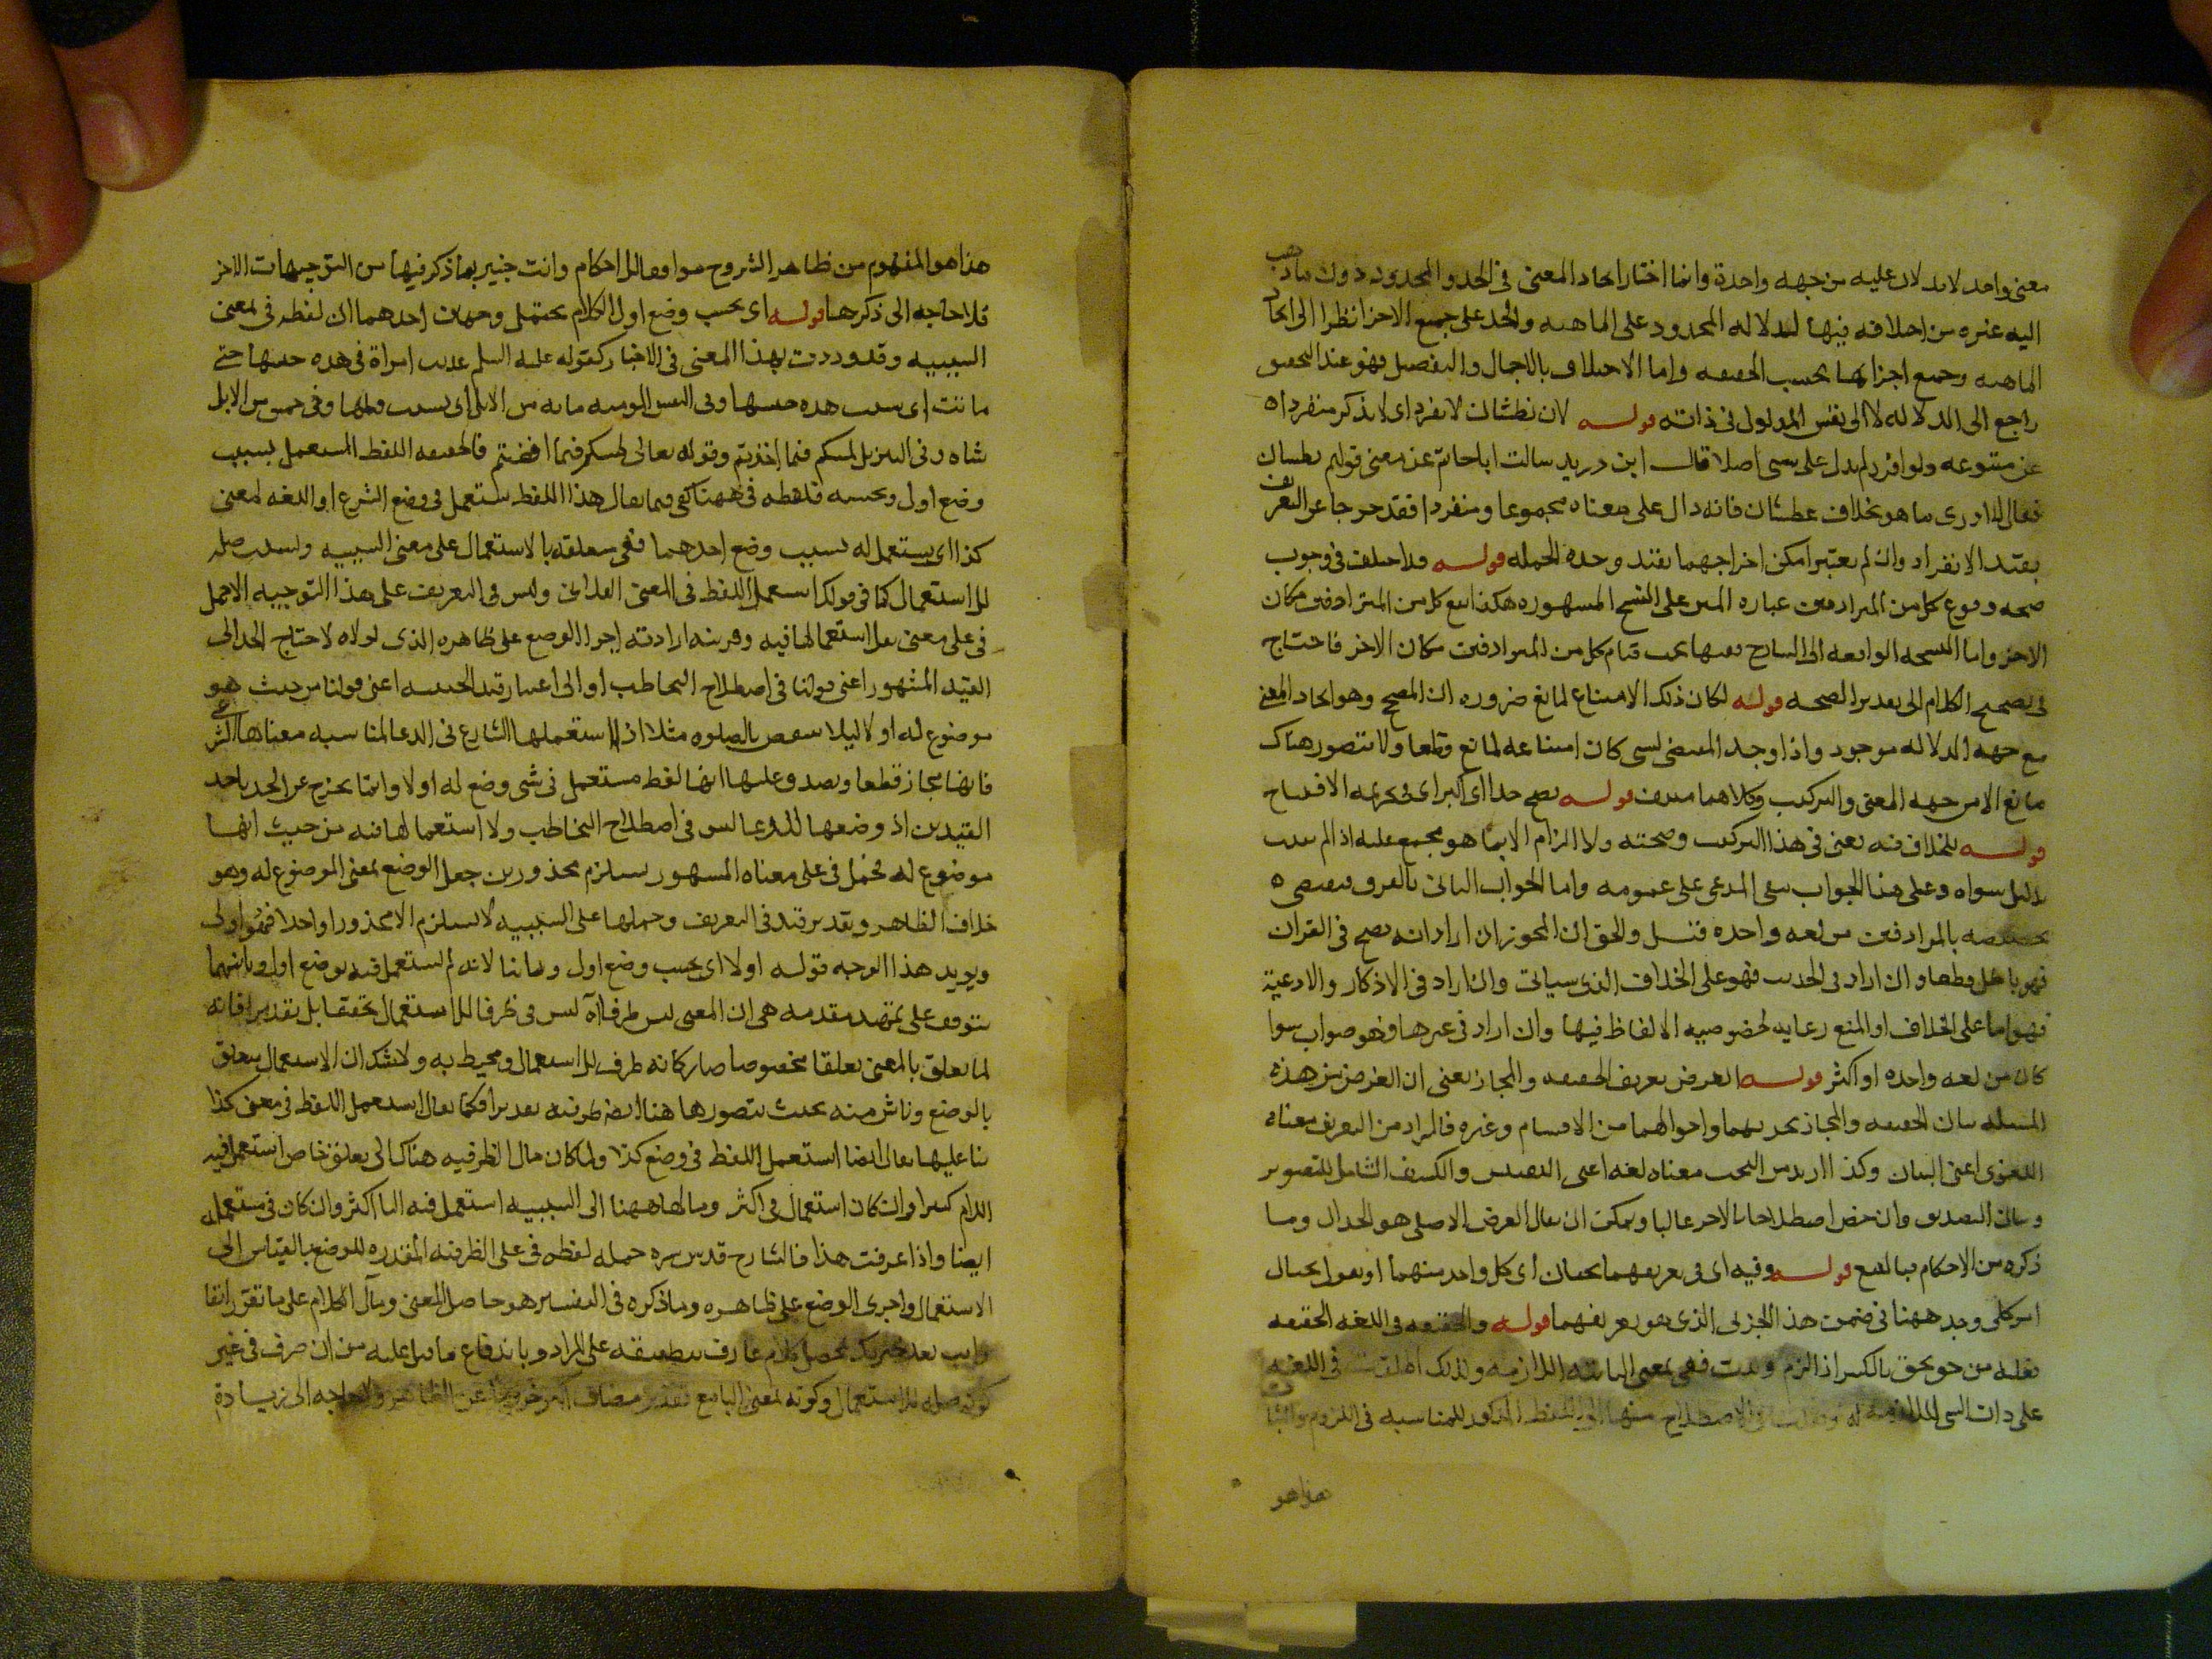 معنى واحد لا يدلان عليه من جهه واحدة وانما اختار اتحاد المعنى فى الحد والمحدود دون ما ذهب
اليه غيره من اختلافه فيها لدلاله المحدود على الماهيه والحد على جميع الاجزا نظرا الى اتحاد
الماهيه وجميع اجزائها بحسب الحقيقه واما الاختلاف بالاجمال والتفصيل فهو عند التحقيق
راجع الى الدلاله لا الى نفس المدلول فى ذاته قوله لان نطشان لا يفرد اى لا يذكر منفردا
عن متبوعه ولو افرد لم يدل على شى اصلا قال ابن دريد سالت ابا حاتم عن معنى قولهم نطشان
فقال لا ادرى ما هو بخلاف عطشان فانه دال على معناه مجموعا ومنفردا فقد خرجا عن التعريف
بقيد الانفراد وان لم يعتبر امكن اخراجهما بقيد وحده الجمله قوله قد اختلف فى وجوب
صحه وقوع كل من المترادفين عباره المتن على النسخ المشهوره هكذا يقع كل من المترادفين مكان
الاخر واما النسخه الواقعه الى الشارح ففيها يجب قيام كل من المترادفين مكان الاخر فاحتاج
فى تصحيح الكلام الى تقدير الصحه قوله لكان ذلك الامتناع لمانع ضروره ان المصحح وهو اتحاد المعنى
مع جهه الدلاله موجود واذا وجد المقتضى لشى كان امتناعه لمانع قطعا ولا يتصور هناك
مانع الا من جهه المعنى والتركيب وكلاهما منتف قوله يصح خداى اكبر اى فى تكبيره الافتتاح
قوله للخلاف فيه يعنى فى هذا التركيب وصحته ولا الزام الا بما هو مجمع عليه اذا لم يثبت
بدليل سواه وعلى هذا الجواب يبقى المدعى على عمومه واما الجواب الثانى بالفرق فيقتضى
تخصيصه بالمرادفين من لغه واحده قيل والحق ان المجوز ان اراد انه يصح فى القران
فهو باطل قطعا وان اراد فى الحديث فهو على الخلاف الذى سياتى وان اراد فى الاذكار والادعية
فهو اما على الخلاف او المنع رعايه لخصوصيه الالفاظ فيها وان اراد فى غيرها فهو صواب سوا
كان من لغه واحده او اكثر قوله الغرض تعريف الحقيقه والمجاز يعنى ان الغرض من هذه
المسئله بيان الحقيقه والمجاز بحديهما واحوالهما من الاقسام وغيره فالمراد من التعريف معناه
اللغوى اعنى البيان وكذا اريد من البحث معناه لغه اعنى التفتيش والكشف الشامل للتصوير
وبيان التصديق وان خص اصطلاحا بالاخر غالبا ويمكن ان يقال الغرض الاصلى هو الحدان وما
ذكره من الاحكام فبالتبع قوله وفيه اى فى تعريفهما بحثان اى كل واحد منهما او نقول بحثان
امر كلى وجد ههنا فى ضمن هذا الجزئى الذى هو تعريفهما قوله والحقيقه فى اللغه الحقيقه
فعليه من حق يحق بالكسر اذا لزم وثبت فهى بمعنى الثابته اللازمه ولذلك اطلقت فى اللغه
على ذات الشى اللازمه له الاصطلاح منها الى اللفظ المذكور للمناسبه فى اللزوم والثبات
هذا هو
هذا هو المفهوم من ظاهر الشروح موافقا للاحكام وانت خبير بما ذكر فيها من التوجيهات الاخر
فلا حاجه الى ذكرها قوله اى بحسب وضع اول الكلام يحتمل وجهين احدهما ان لفظه فى لمعنى
السببيه وقد وردت بهذا المعنى فى الاخبار كقوله عليه السلم عذبت امراة فى هره حبستها حتى
ماتت اى بسبب هره حبستها وفى النفس المومنه مايه من الابل اى بسبب قتلها وفى خمس من الابل
شاه وفى التنزيل لمسكم فيما اخذتم وقوله تعالى لمسكم فيما افضتم فالحقيقه اللفظ المستعمل بسبب
وضع اول وبحسبه فلفظه فى ههنا كفى فيما يقال هذا اللفظ يستعمل فى وضع الشرع او اللغه لمعنى
كذا اى يستعمل له بسبب وضع احدهما ففى متعلقه بالاستعمال على معنى السببيه وليست صله
للاستعمال كما فى قولك استعمل اللفظ فى المعنى الفلانى وليس فى التعريف على هذا التوجيه الا حمل
فى على معنى يقل استعمالها فيه وقرينه ارادته اجرا الوضع على ظاهره الذى لولاه لاحتاج الحد الى
القيد المشهور اعنى قولنا فى اصطلاح التخاطب او الى اعتبار قيد الحيثيه اعنى قولنا من حيث هو
موضوع له اولا ليلا ينتقض بالصلوه مثلا اذا استعملها الشارع فى الدعا لمناسبه معناها الشرعى
فانها مجاز قطعا ويصدق عليها انها لفظ مستعمل فى شى وضع له اولا وانما يخرج عن الحد باحد
القيدين اذ وضعها للدعا ليس فى اصطلاح التخاطب ولا استعمالها فيه من حيث انها
موضوع له فحمل فى على معناه المشهور يستلزم محذورين جعل الوضع بمعنى الموضوع له وهو
خلاف الظاهر وتقدير قيد فى التعريف وحملها على السببيه لا يستلزم الا محذورا واحدا فهو اولى
ويويد هذا الوجه قوله اولا اى بحسب وضع اول وثانيا لانه لم يستعمل فيه بوضع اول وثانيهما
يتوقف على تمهيد مقدمه هى ان المعنى ليس ظرفا اه ليس فى ظرفا للاستعمال تحقيقا بل تقديرا فانه
لما تعلق بالمعنى تعلقا مخصوصا صار كانه ظرف للاستعمال ومحيط به ولا شك ان الاستعمال يتعلق
بالوضع وناش منه بحيث يتصور ها هنا ايضا ظرفيه تقديرا فكما يقال استعمل اللفظ فى معنى كذا
بنا عليها يقال ايضا استعمل اللفظ فى وضع كذا ولما كان مال الظرفيه هناك الى تعلق خاص استعمل فيه
اللام كثيرا وان كان استعمال فى اكثر ومالها ههنا الى السببيه استعمل فيه البا اكثر وان كان فى مستعمله
ايضا واذا عرفت هذا فالشارح قدس سره حمله لفظه فى على الظرفيه المقدره للوضع بالقياس الى
الاستعمال واجرى الوضع على ظاهره وما ذكره فى التفسير هو حاصل المعنى ومآل الكلام على ما تقرر انفا
وانت بعد خبرتك بمحصل كلام عارف بتطبيقه على المراد وباندفاع ما قيل عليه من ان صرف فى غير
كونه صله للاستعمال وكونه بمعنى البا مع تقدير مضاف اخر خروج عن الظاهر ولا حاجه الى زيادة